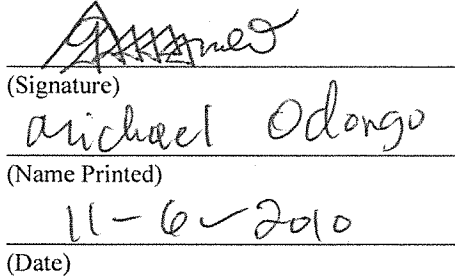 (Signature)
Michael Odongo
(Name Printed)
11-6-2010
(Date)